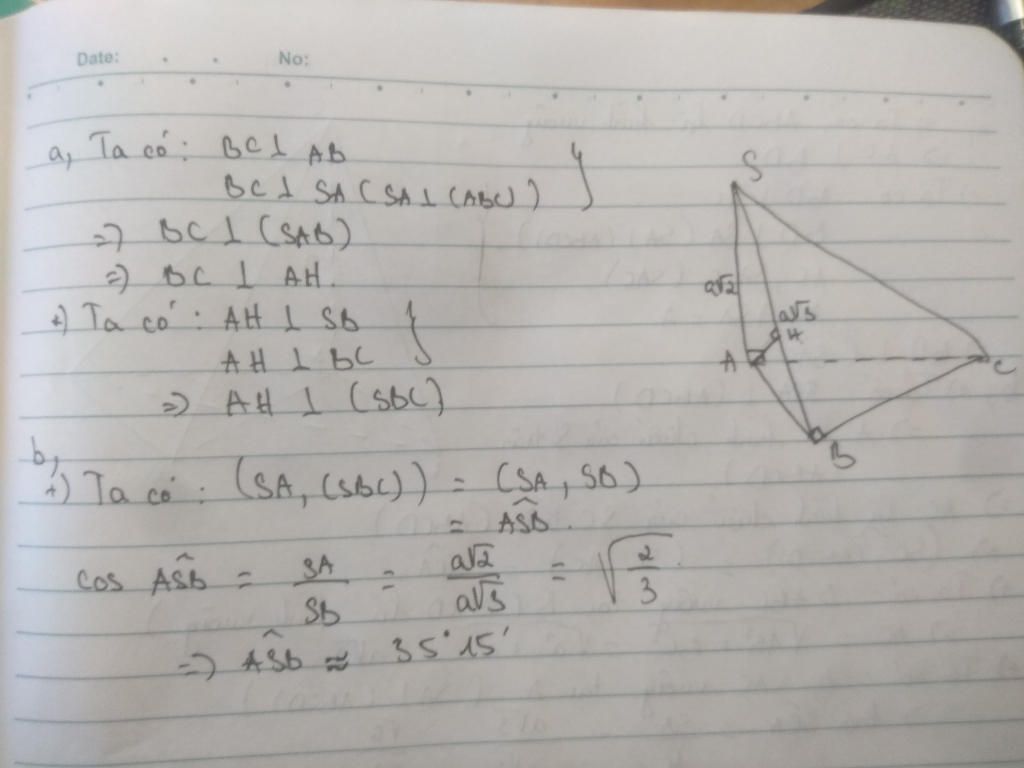 Date: No:
a, Ta có: BC ⊥ AB
BC ⊥ SA (SA ⊥ (ABC)) }
=> BC ⊥ (SAB)
=> BC ⊥ AH.
+) Ta có: AH ⊥ SB }
AH ⊥ BC
=> AH ⊥ (SBC)
b,
+) Ta có: (SA, (SBC)) = (SA, SB)
= ASB^.
cos ASB^ = SA/SB = a√2/a√3 = √(2/3).
=> ASB^ ≈ 35°15'
S
a√2
a√3
H
A
C
B